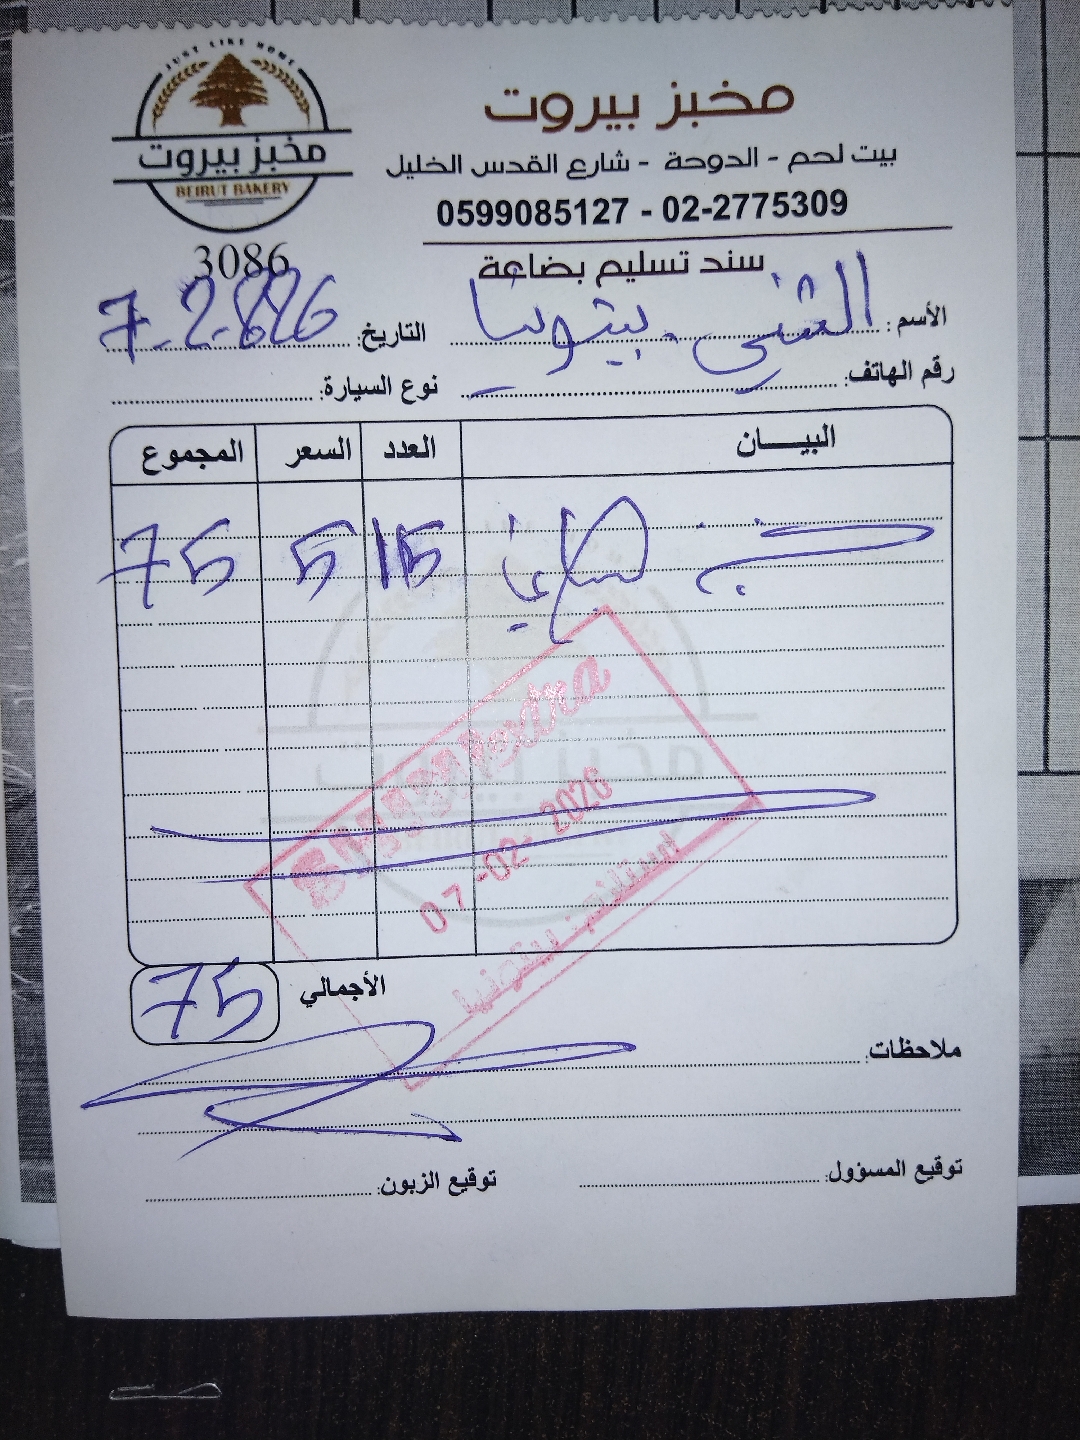 JUST LIKE HOME
مخبز بيروت
BEIRUT BAKERY
مخبز بيروت
بيت لحم - الدوحة - شارع القدس الخليل
0599085127 - 02-2775309
3086
سند تسليم بضاعة
الأسم: الثني. بيتونيا
التاريخ: 7-2-2026
رقم الهاتف:
نوع السيارة:
البيـــان العدد السعر المجموع
خبز 15 5 75
Extra
07-02-2026
بيتونيا
الأجمالي 75
ملاحظات:
توقيع المسؤول:
توقيع الزبون: